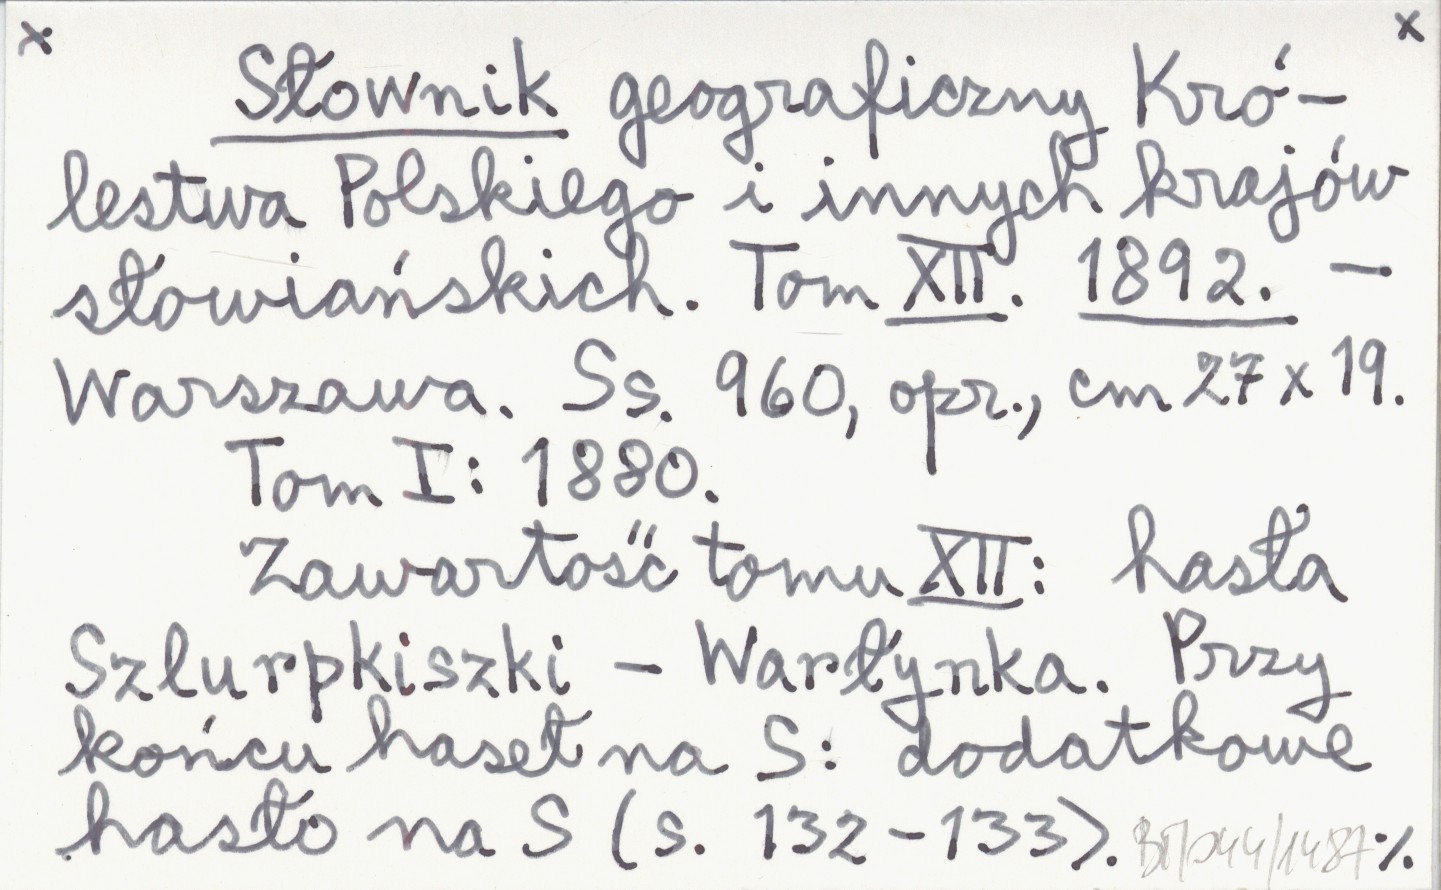 x x
Słownik geograficzny Kró-
lestwa Polskiego i innych krajów
słowiańskich. Tom XII. 1892. —
Warszawa. Ss. 960, opr., cm 27 x 19.
Tom I: 1880.
Zawartość tomu XII: hasła
Szlurpkiszki – Warłynka. Przy
końcu haseł na S: dodatkowe
hasło na S (s. 132-133). ·/.